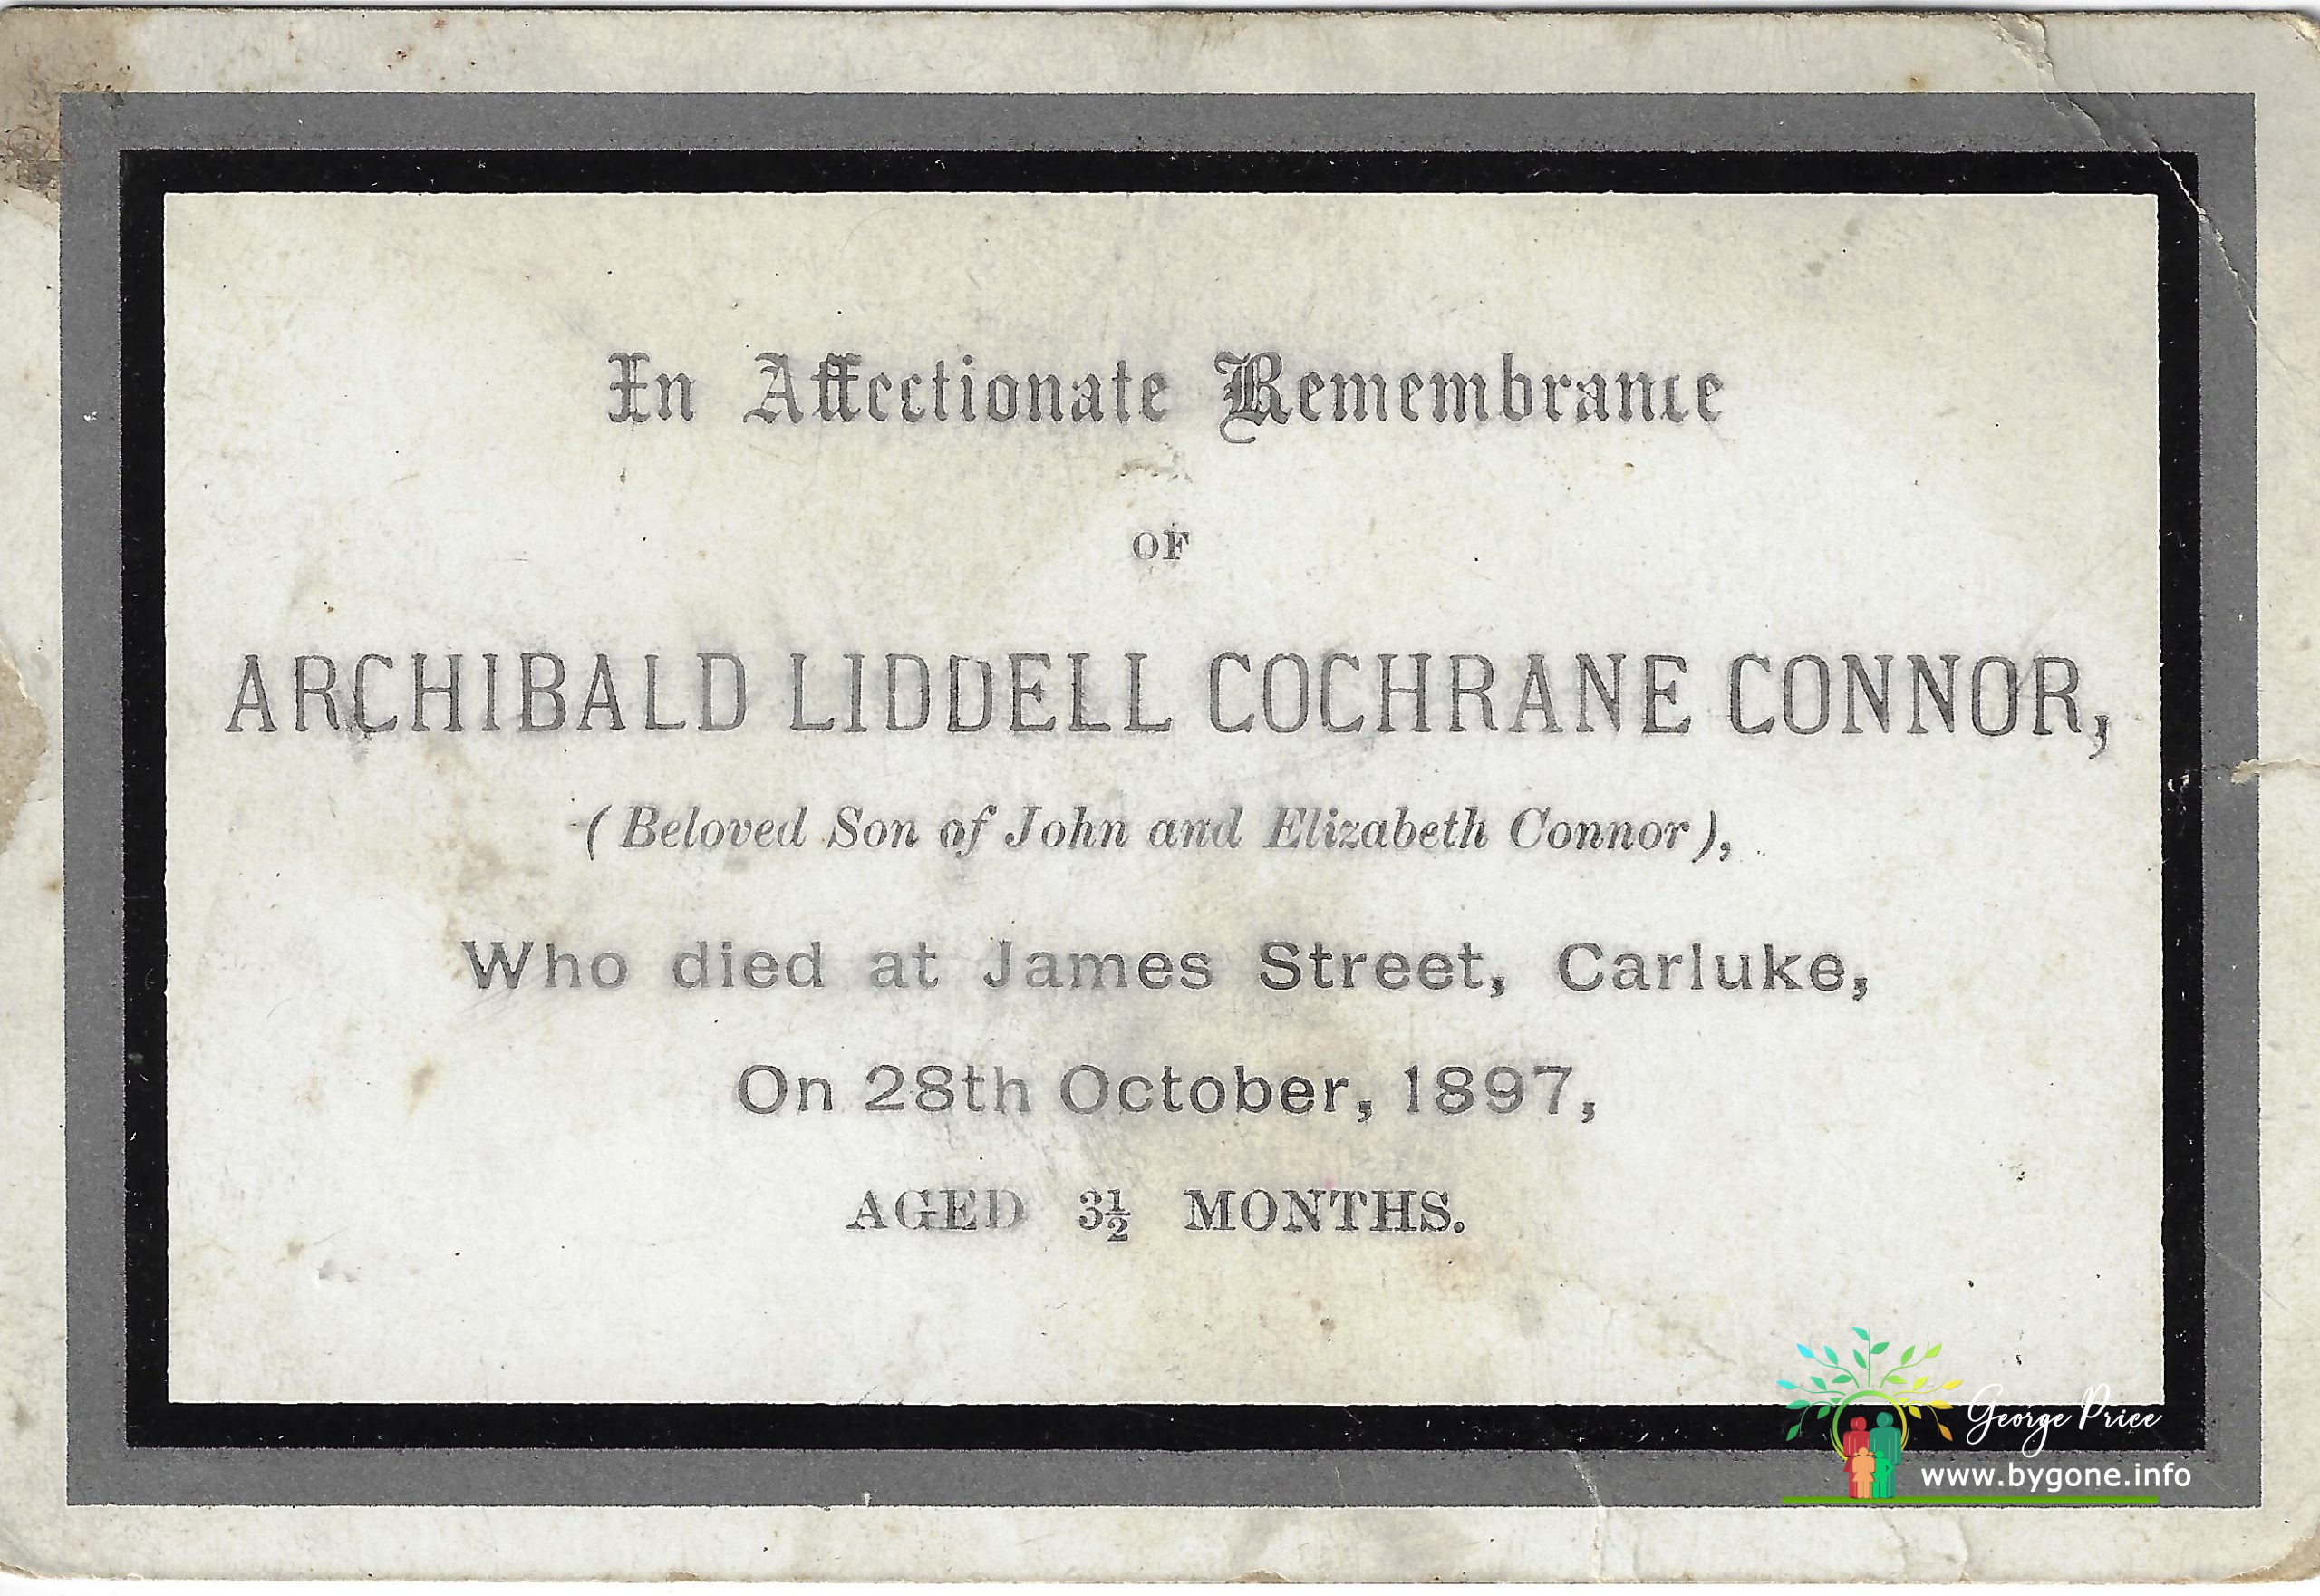 In Affectionate Remembrance
OF
ARCHIBALD LIDDELL COCHRANE CONNOR,
(Beloved Son of John and Elizabeth Connor),
Who died at James Street, Carluke,
On 28th October, 1897,
AGED 3½ MONTHS.
George Price
www.bygone.info